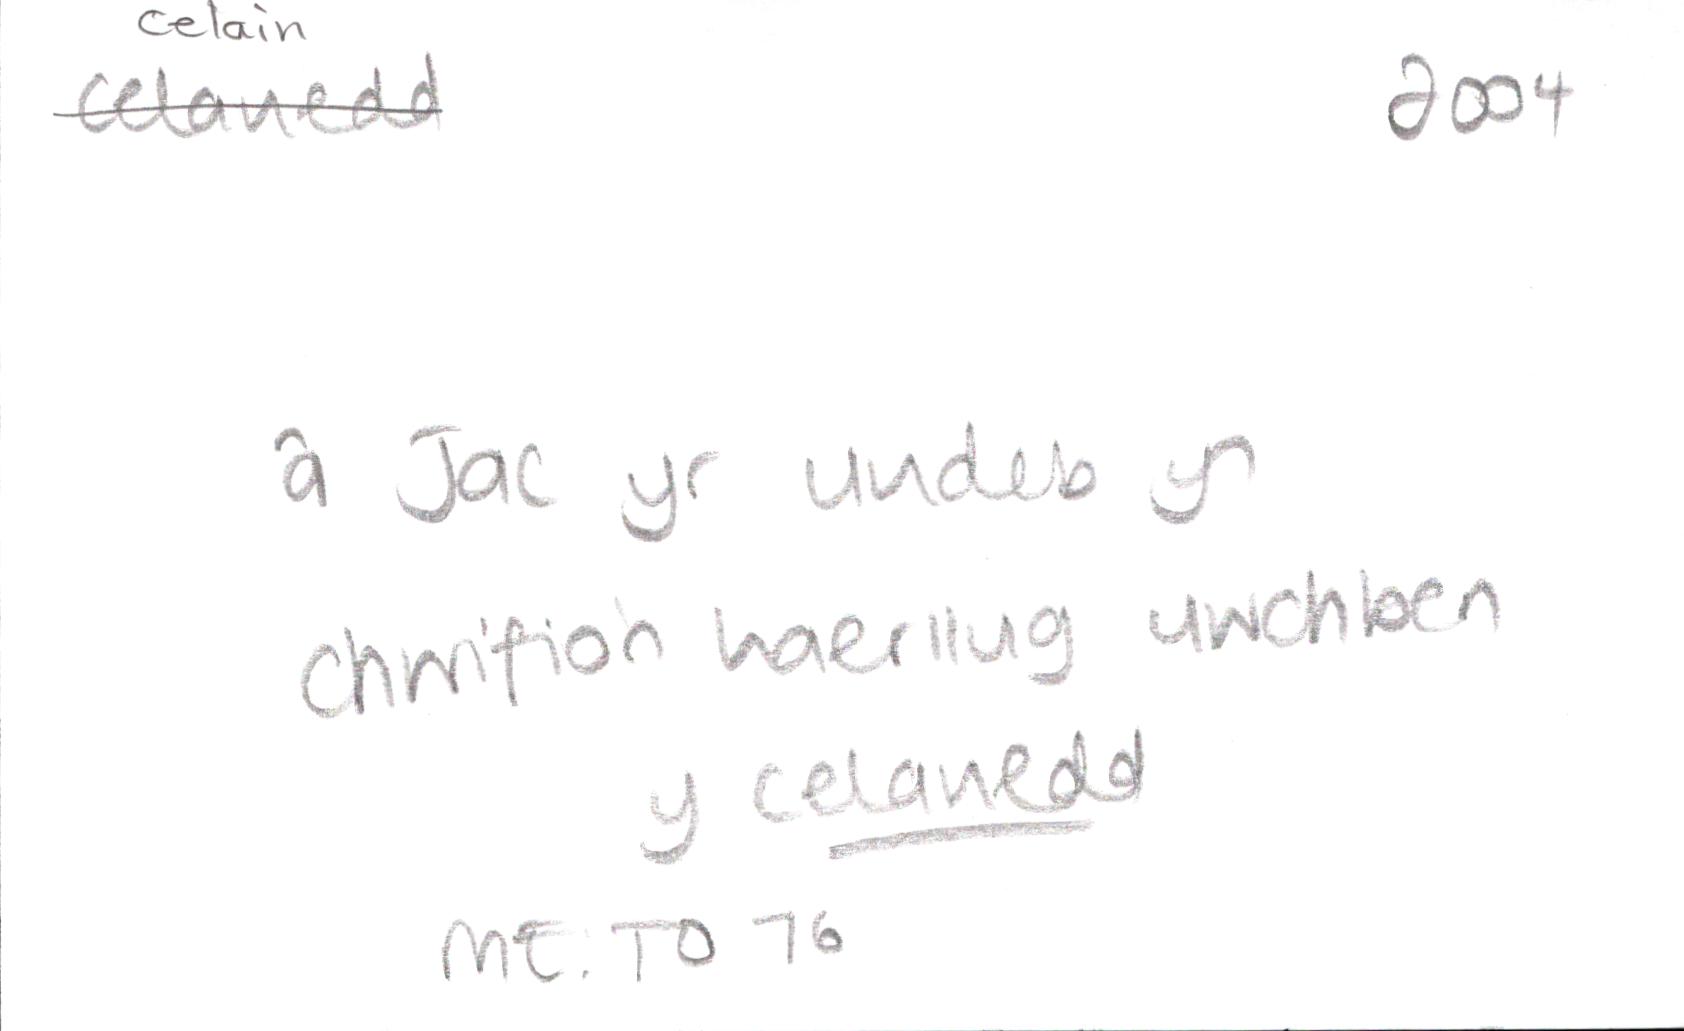 celain
celanedd 2004
â Jac yr undeb yn
chwifio'n haerllug uwchben
y celanedd
ME. TO 76